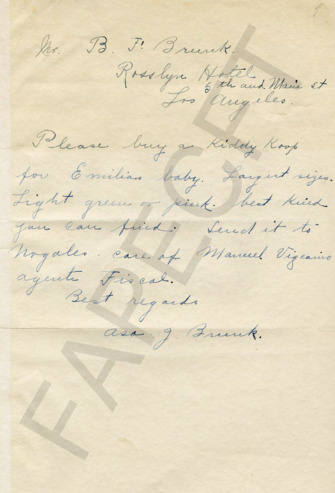 Mr. B. F. Brunk
Rosslyn Hotel
5th and Main st
Los Angeles.
Please buy a Kiddy Koop
for Emilias baby. Largest sizes.
Light green or pink. best kind
you can find. Send it to
Nogales. care of Manuel
agente Fiscal.
Best regards
Asa J. Brunk.
FAPECFT